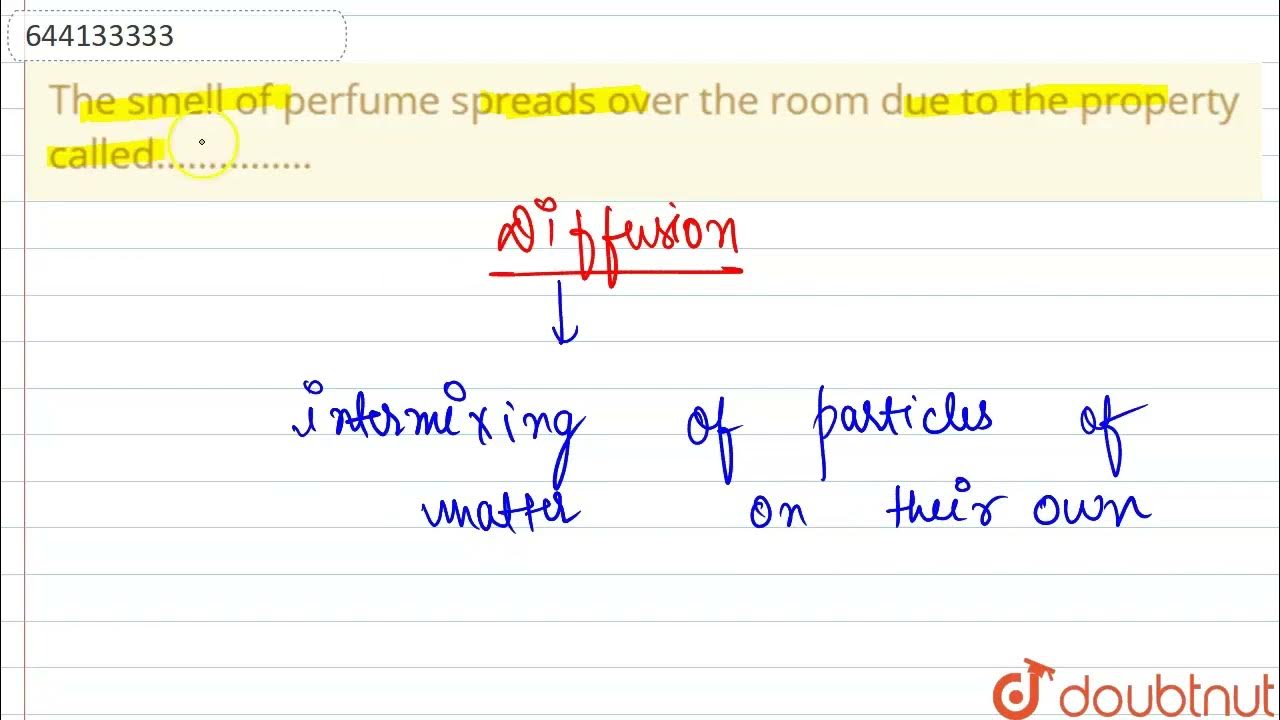 644133333
The smell of perfume spreads over the room due to the property
called...............
Diffusion
intermixing of particles of
matter on their own
doubtnut